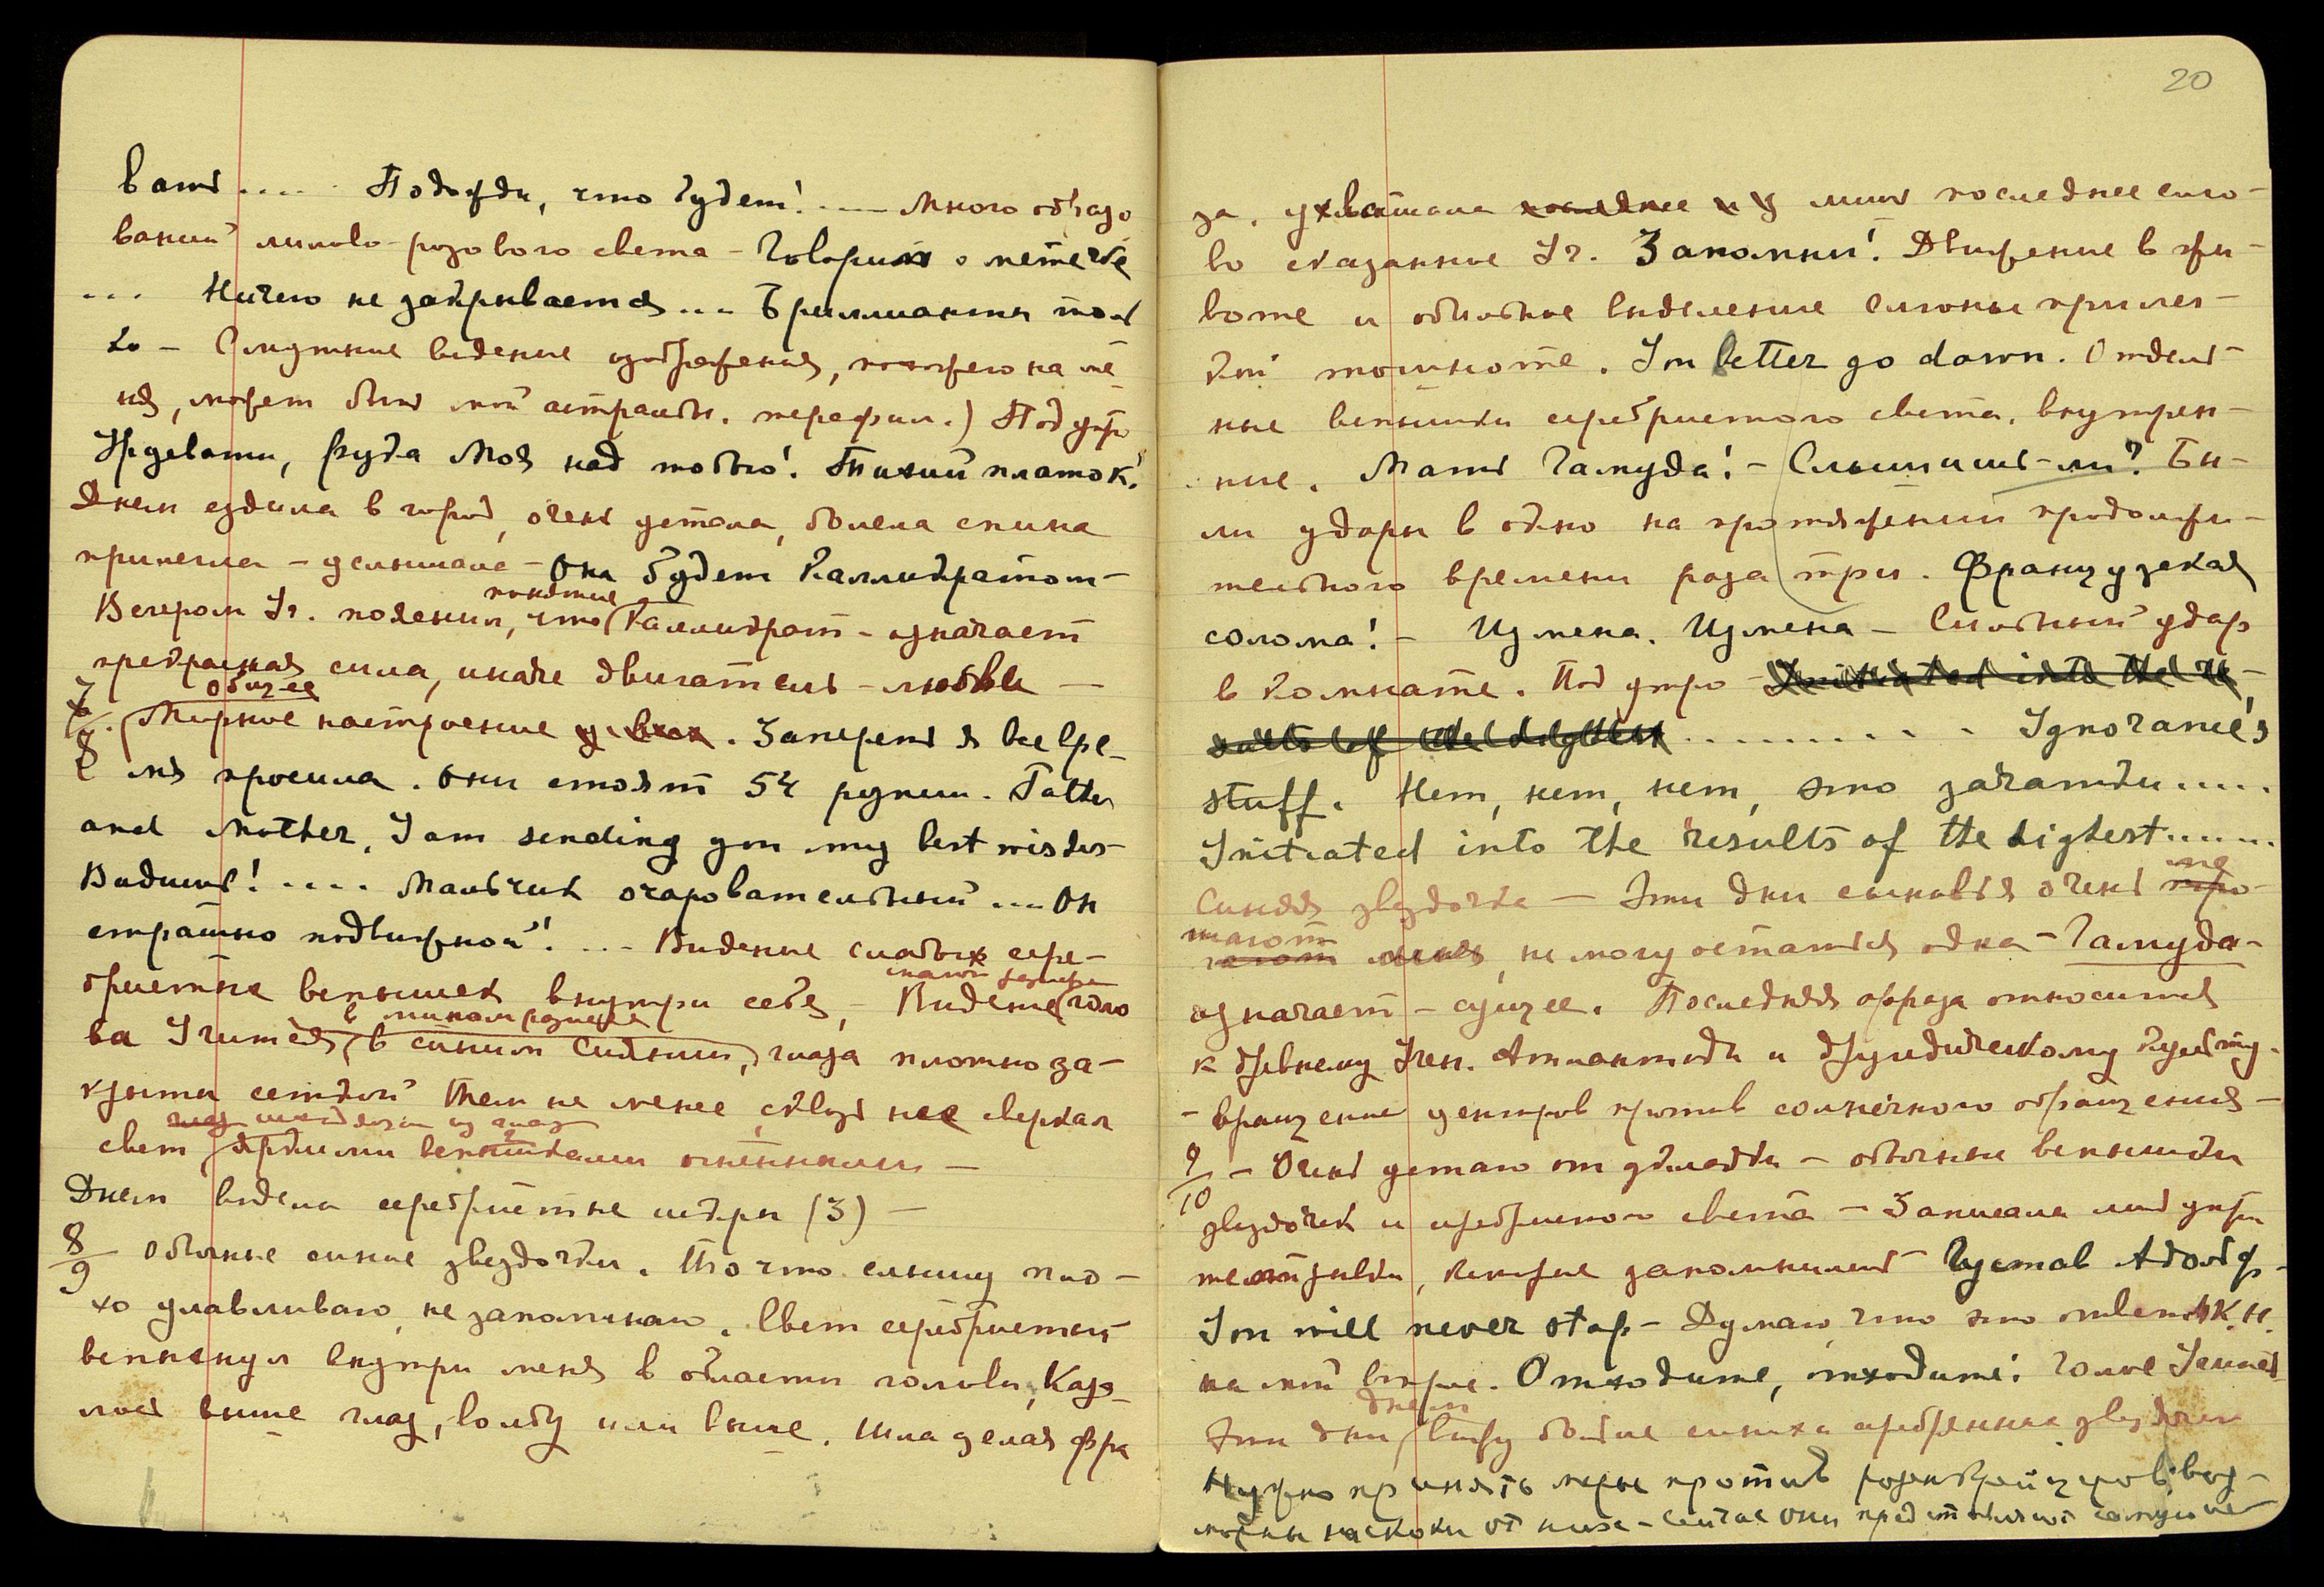 вать .... Подожди, что будет! .... Много образо
ваний лилово-розового света - Говорил о метече
... Ничего не закрывается ... Бриллианты толь
ко - Смутные видение изображения, похожего на ме
ня, может быть мой астральн. перефил.) Под утро
Урдевати, рука Моя над тобою! Тихий платок!
Днем ездила в город, очень устала, болела спина
прилегла - услышала - Она будет Калликратом -
Вечером Уч. пояснил, что понятие Калликрат - означает
прекрасная сила, иначе двигатель - любви -
7/8 Общее Мирное настроение у всех. Запереть я все вре-
мя просила. Они стоят 54 рупии. Father
and Mother, I am sending you my best wishes -
Видишь! .... Мальчик очаровательный ... Он
страшно подвижной! ... Видение слабых сере-
бристые вспышек внутри себя, - Видение голо
ва Учителя, в синим сиянии, глаза плотно за-
крыты сеткой тем не менее, сквозь нее сверкал
свет яркими вспышками огненными -
Днем видела серебристые искры (3) -
8/9 Обычные синие звездочки. То что слышу пло-
хо улавливаю, не запоминаю. Свет серебристый
вспыхнул внутри меня в области головы, Каза-
лось выше глаз, во лбу или выше. Шла целая фра
20
за, ухватила последнее из лишь последнее сло-
во сказанное Уч. Запомни! Движение в жи-
воте и обильное выделение слюны прилег-
кой тошноте. You better go down. Отдель-
ные вспышки серебристого света, внутрен-
ние. Мать Гамуда! - Слышишь-ли? Бы-
ли удары в окно на протяжении продолжи-
тельного времени раза три. Французская
солома! - Измена. Измена - Сильный удар
в комнате. Под утро - Initiated into the re-
sults of the highest .......... Ignorance's
stuff. Нет, нет, нет, это зачатки .....
Initiated into the results of the highest .....
Синяя звездочка - Эти дни сыновья очень
меня, не могу остаться одна - Гамуда -
означает - сущее. Последняя фраза относится
к древнему Учен. Атлантиды и друидическому культу.
- вращение центров против солнечного обращения -
9/10 - Очень устаю от укладки - обычные вспышки
звездочек и серебристого света - Записала лишь утр.
которые запомнились Густав Адольф -
You will never stop - Думаю, что это ответ К.Н.
на мой вопрос. Отходите, отходите! Голос Учителя
Эти дни днем вижу больше синих и серебренные звездочки
Нужно принять меры против розенкрейцеров, воз-
можны наскоки от них - сейчас они представляют